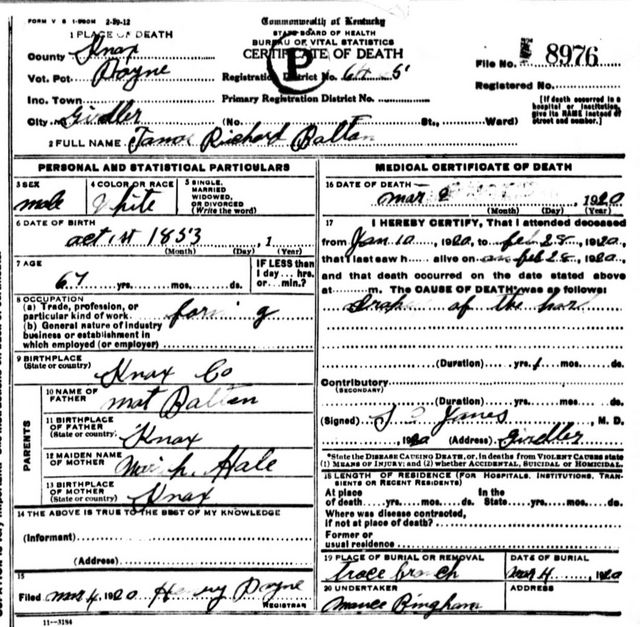 FORM V S 1-950M 2-29-12
Commonwealth of Kentucky
STATE BOARD OF HEALTH
BUREAU OF VITAL STATISTICS
CERTIFICATE OF DEATH
1 PLACE OF DEATH
County Knox
Vot. Pct Payne
Inc. Town
City no Girdler
P
Registration District No.
Primary Registration District No.
(No. St., Ward)
File No. 8976
Registered No.
[If death occurred in a
hospital or institution,
give its NAME instead of
street and number.]
2 FULL NAME Richard
PERSONAL AND STATISTICAL PARTICULARS
3 SEX
male
4 COLOR OR RACE
5 SINGLE,
MARRIED
WIDOWED,
OR DIVORCED
(Write the word)
6 DATE OF BIRTH
oct 1st 1853, 1
(Month) (Day) (Year)
7 AGE
67 yrs. mos. ds.
IF LESS than
1 day... hrs.
or... min.?
8 OCCUPATION
(a) Trade, profession, or
particular kind of work.
(b) General nature of industry
business or establishment in
which employed (or employer)
9 BIRTHPLACE
(State or country)
Knox Co
PARENTS
10 NAME OF
FATHER
mat
11 BIRTHPLACE
OF FATHER
(State or country)
Knox
12 MAIDEN NAME
OF MOTHER
Hale
13 BIRTHPLACE
OF MOTHER
(State or country)
Knox
14 THE ABOVE IS TRUE TO THE BEST OF MY KNOWLEDGE
(Informant)
(Address)
15
Filed mar 4, 1920 Henry Payne
REGISTRAR
11—3184
MEDICAL CERTIFICATE OF DEATH
16 DATE OF DEATH
mar, 1920
(Month) (Day) (Year)
17 I HEREBY CERTIFY, That I attended deceased
from Jan. 10, 1920, to feb 28, 1920,
that I last saw h alive on feb 28, 1920,
and that death occurred on the date stated above
at m. The CAUSE OF DEATH* was as follows:
of the
(Duration) yrs. mos. ds.
Contributory
(SECONDARY)
(Duration) yrs. mos. ds.
(Signed) Jones, M. D.
, 1920 (Address) Girdler
*State the DISEASE CAUSING DEATH, or, in deaths from VIOLENT CAUSES state
(1) MEANS OF INJURY; and (2) whether ACCIDENTAL, SUICIDAL or HOMICIDAL.
18 LENGTH OF RESIDENCE (FOR HOSPITALS, INSTITUTIONS, TRAN-
SIENTS OR RECENT RESIDENTS)
At place In the
of death yrs. mos. ds. State yrs. mos. ds.
Where was disease contracted,
if not at place of death?
Former or
usual residence
19 PLACE OF BURIAL OR REMOVAL
DATE OF BURIAL
mar 4, 1920
20 UNDERTAKER
Bingham
ADDRESS